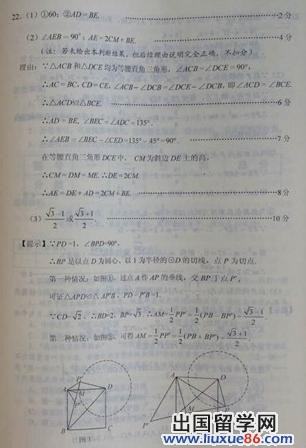 22. (1) ①60; ②AD=BE. 2分
(2) ∠AEB=90°; AE=2CM+BE. 4分
(注: 若未给出本判断结果, 但后续理由说明完全正确, 不扣分)
理由: ∵△ACB和△DCE均为等腰直角三角形, ∠ACB=∠DCE=90°,
∴AC=BC, CD=CE, ∠ACB-∠DCB=∠DCE-∠DCB, 即∠ACD=∠BCE.
∴△ACD≌△BCE.
∴AD=BE, ∠BEC=∠ADC=135°.
∴∠AEB=∠BEC-∠CED=135°-45°=90°. 7分
在等腰直角三角形DCE中, CM为斜边DE上的高,
∴CM=DM=ME. ∴DE=2CM.
∴AE=DE+AD=2CM+BE. 8分
(3) √3-1/2 或 √3+1/2. 10分
【提示】∵PD=1, ∠BPD=90°,
∴BP是以点D为圆心、以1为半径的⊙D的切线, 点P为切点.
第一种情况: 如图①, 过点A作AP的垂线, 交BP于点P′,
可证△APD≌△AP′B, PD=P′B=1.
∵CD=√2, ∴BD=2, BP=√3, ∴AM=1/2PP′=1/2(PB-BP′)=√3-1/2.
第二种情况: 如图②, 可得AM=1/2PP′=1/2(PB+BP′)=√3+1/2.
A
D
B
C
A
D
P′
B
C
出国留学网
www.liuxue86.com